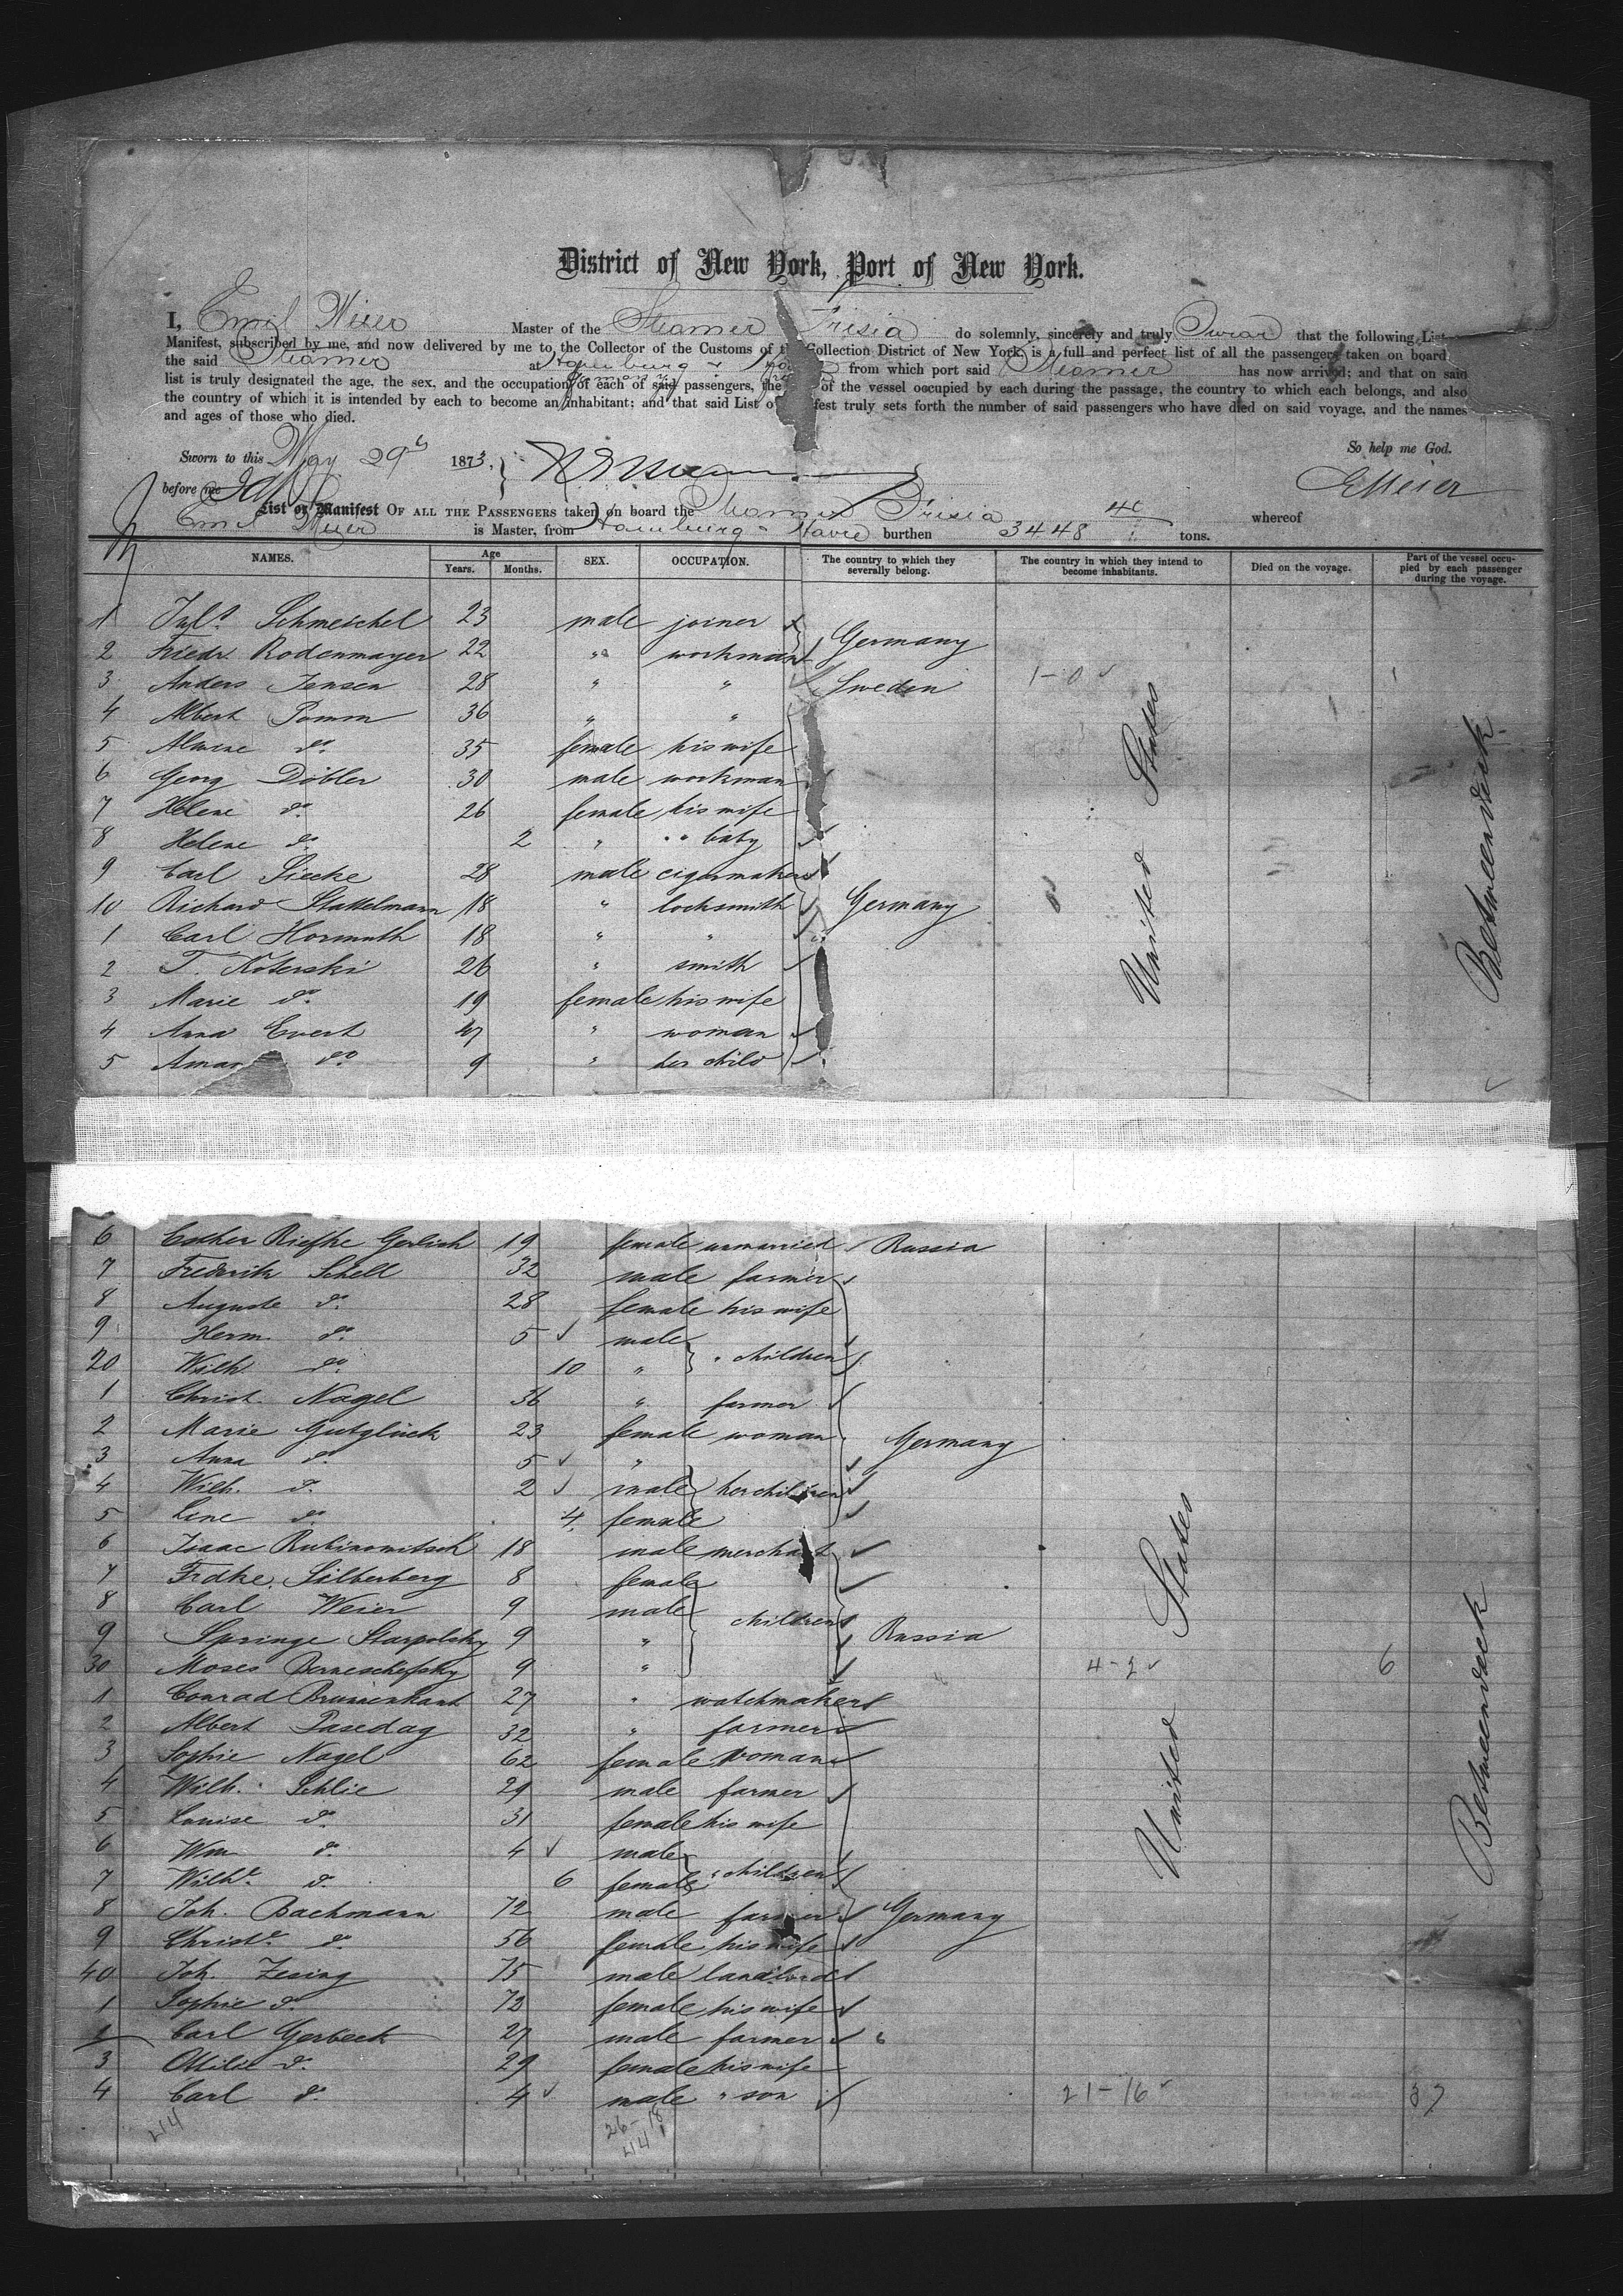 District of New York, Port of New York.
I, Emil Meier Master of the Steamer Frisia do solemnly, sincerely and truly Swear that the following List
Manifest, subscribed by me, and now delivered by me to the Collector of the Customs of Collection District of New York, is a full and perfect list of all the passengers taken on board
the said Steamer at Hamburg & from which port said Steamer has now arrived; and that on said
list is truly designated the age, the sex, and the occupation of each of said passengers, the of the vessel occupied by each during the passage, the country to which each belongs, and also
the country of which it is intended by each to become an inhabitant; and that said List truly sets forth the number of said passengers who have died on said voyage, and the names
and ages of those who died.
So help me God.
Sworn to this May 29th 1873,
before me
EMeier
List or Manifest OF ALL THE PASSENGERS taken on board the Steamer Frisia whereof
Emil Meier is Master, from Hamburg - Havre burthen 3448 tons.
NAMES. Age Years. Months. SEX. OCCUPATION. The country to which they severally belong. The country in which they intend to become inhabitants. Died on the voyage. Part of the vessel occupied by each passenger during the voyage.
1 Juls. Schmeichel 23 male joiner
Germany
2 Friedr. Rodenmayer 22 " workman
3 Anders Jensen 28 " " Sweden 1-0
4 Albert Pomm 36 " "
5 Alwine do. 35 female his wife
6 Georg Döbler 30 male workman
7 Helene do. 26 female his wife
8 Helene do. 2 " " baby
9 Carl Siecke 28 male cigarmaker
10 Richard Stattelmann 18 " locksmith Germany
1 Carl Hormuth 18 " "
2 T. Koterski 26 " smith
3 Marie do. 19 female his wife
4 Anna Evert 47 " woman
5 do. 9 " her child
United States
Betweendeck
6 Esther Riefke Gerlich 19 female unmarried Russia
7 Frederik Schell 32 male farmer
8 Auguste do. 28 female his wife
9 Herm. do. 5 male
20 Wilh. do. 10 " " children
1 Christ. Nagel 36 " farmer
2 Marie Gutglück 23 female woman Germany
3 Anna do. 5 "
4 Wilh. do. 2 male her children
5 Line do. 4 female
6 Isaac Rubinowitsch 18 male merchant
7 Frdke. Silberberg 8 female
8 Carl Weier 9 male children
9 Springe Starpolsky 9 " Russia
30 Moses Berneschefsky 9 " 4-2 6
1 Conrad Brunnenkant 27 " watchmaker
2 Albert Pasedag 32 " farmer
3 Sophie Nagel 62 female woman
4 Wilh. Schlie 29 male farmer
5 Louise do. 31 female his wife
6 Wm do. 4 male
7 Wilhe. do. 6 female " children
8 Joh. Bachmann 72 male farmer Germany
9 Christe. do. 56 female his wife
40 Joh. Zesing 75 male landlord
1 Sophie do. 72 female his wife
2 Carl Gerbeck 27 male farmer "
3 Ottilie do. 29 female his wife
4 Carl do. 4 male " son 21-16 37
United States
Betweendeck
44
26-18
44